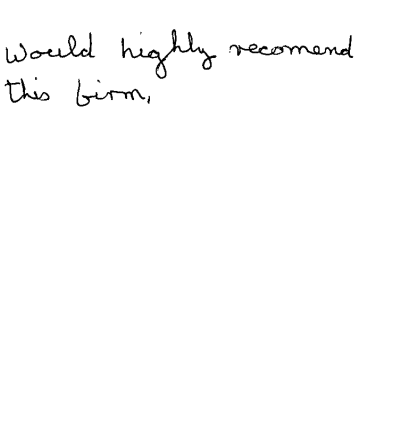 Would highly recomend
this firm.